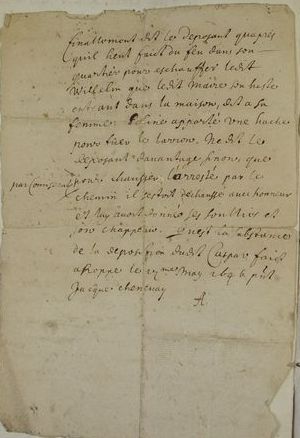 finallement dit le deposant qu'apres
qu'il heut fait du feu dans son
quartier pour eschauffer ledit
Wilhelm que ledit Maire
entrant dans la maison, dit a sa
femme apporte une hache
pour tuer le larron. Ne dit le
deposant davantage sinon que
par Compas
pour chausser larresté par le
chemin il s'estoit deschaussé
et luy avoit donné ses soulires et
son chappeau. Qu'est la substance
de la deposition dudit Caspar fait
le May 164
Jacque